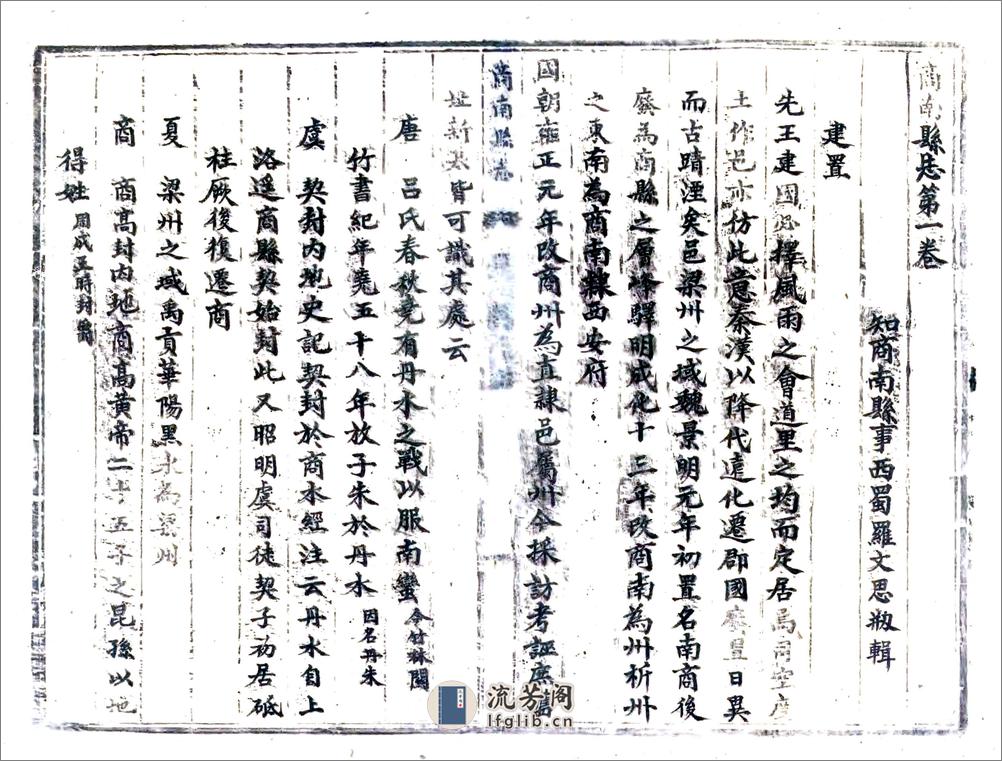 商南縣志第一卷
知商南縣事西蜀羅文思槪輯
建置
先王建國必擇風雨之會道里之均而定居焉司空度
土作邑亦仿此意秦漢以降代遠化遷郡國廢置日異
而古蹟湮矣邑梁州之域魏景明元年初置名南商後
廢為商縣之層峰驛明成化十三年改商南為州析州
之東南為商南隸西安府
國朝雍正元年改商州為直隸邑屬州今採訪考証庶舊
址新基皆可識其處云
商南縣志
唐 呂氏春秋堯有丹水之戰以服南蠻今竹林關
竹書紀年堯五十八年放子朱於丹水因名丹朱
虞 契封內地史記契封於商水經注云丹水自上
洛逕商縣契始封此又昭明虞司徒契子初居砥
柱厥後復遷商
夏 梁州之域禹貢華陽黑水為梁州
商 商高封內地商高黃帝二十五子之昆孫以地
得姓周成王時封
流芳阁
lfglib.cn